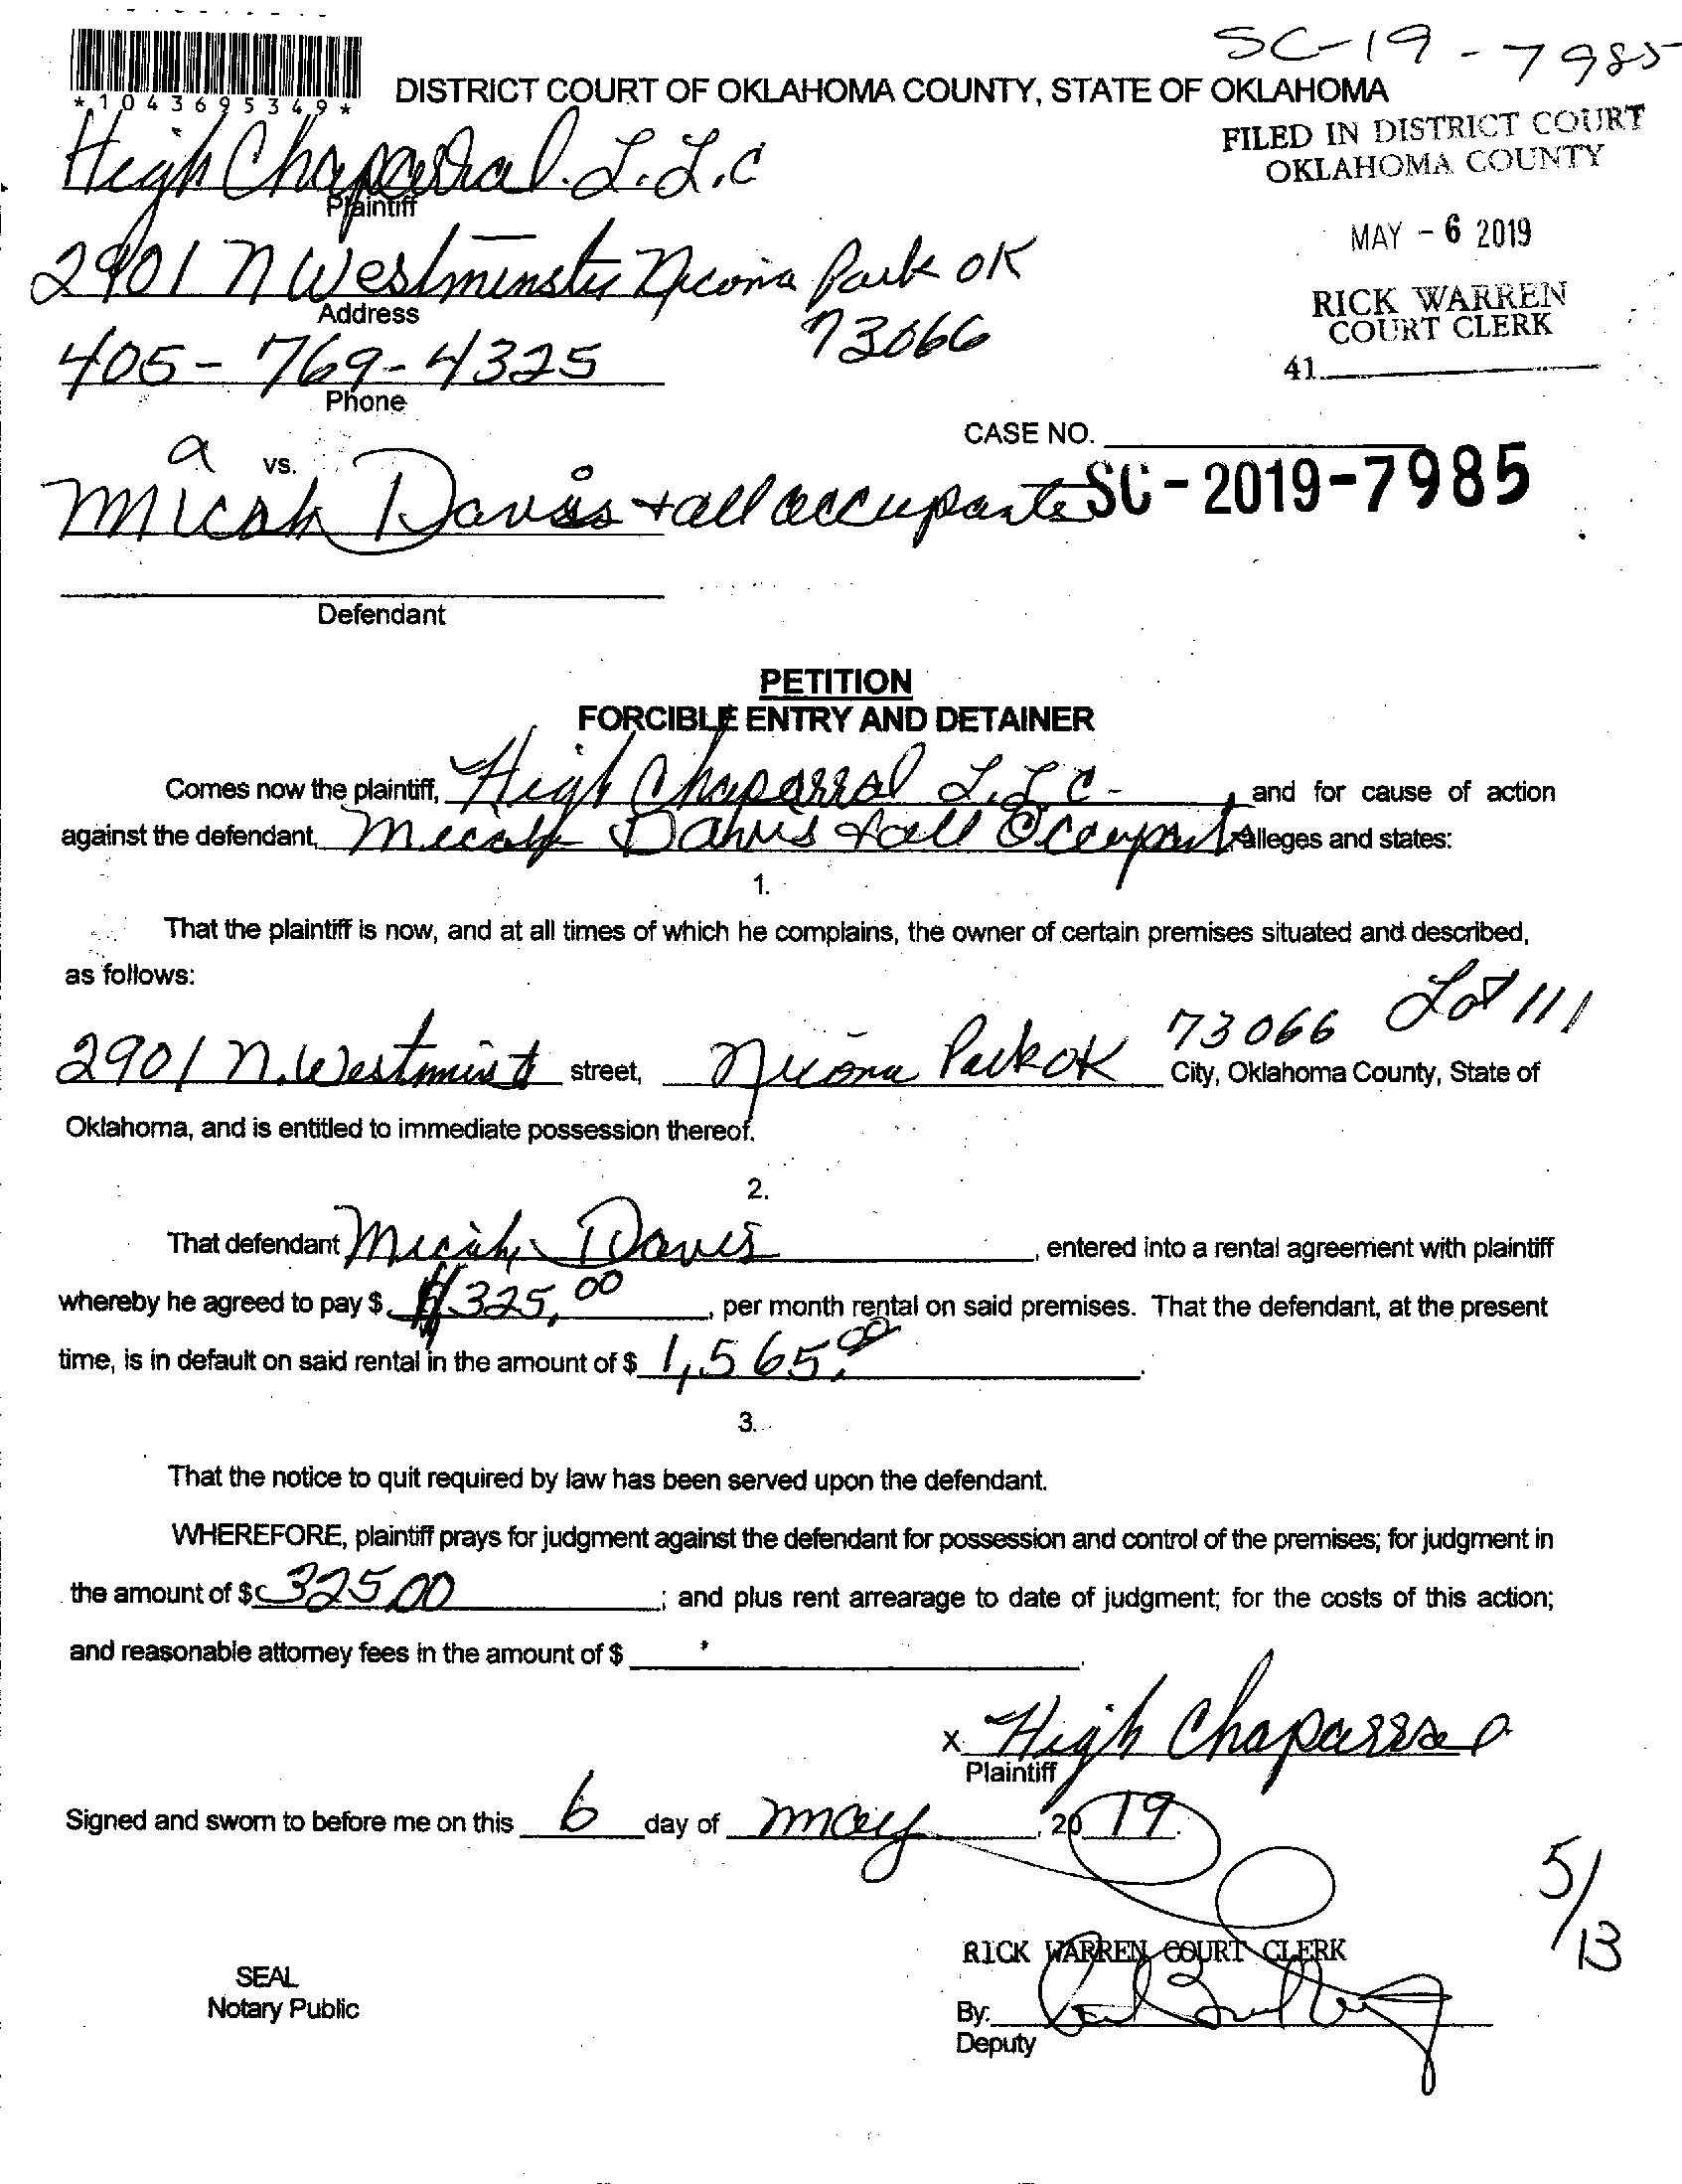 SC-19-7985
*1043695349*
DISTRICT COURT OF OKLAHOMA COUNTY, STATE OF OKLAHOMA
FILED IN DISTRICT COURT
OKLAHOMA COUNTY
High Chaparral L.L.C
Plaintiff
MAY - 6 2019
2901 N Westminster Nicoma Park OK
Address
73066
RICK WARREN
COURT CLERK
41
405-769-4325
Phone
CASE NO.
a vs.
Micah Davis + all occupants SC-2019-7985
Defendant
PETITION
FORCIBLE ENTRY AND DETAINER
Comes now the plaintiff, High Chaparral L.L.C- and for cause of action
against the defendant, Micah Davis + all Occupant Alleges and states:
1.
That the plaintiff is now, and at all times of which he complains, the owner of certain premises situated and described,
as follows:
Lot 111
2901 N. Westminst street, Nicoma Park OK 73066 City, Oklahoma County, State of
Oklahoma, and is entitled to immediate possession thereof.
2.
That defendant Micah Davis, entered into a rental agreement with plaintiff
whereby he agreed to pay $ 325.00, per month rental on said premises. That the defendant, at the present
time, is in default on said rental in the amount of $ 1,565.00.
3.
That the notice to quit required by law has been served upon the defendant.
WHEREFORE, plaintiff prays for judgment against the defendant for possession and control of the premises; for judgment in
the amount of $ 325.00; and plus rent arrearage to date of judgment; for the costs of this action;
and reasonable attorney fees in the amount of $ .
x High Chaparral
Plaintiff
Signed and sworn to before me on this 6 day of May, 2019.
5/13
RICK WARREN COURT CLERK
SEAL
Notary Public
By:
Deputy